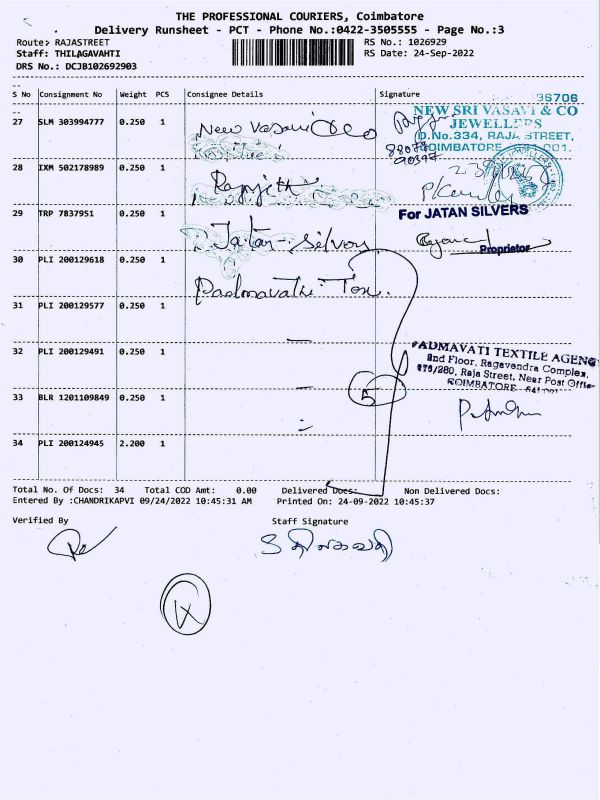 THE PROFESSIONAL COURIERS, Coimbatore
Delivery Runsheet - PCT - Phone No.:0422-3505555 - Page No.:3
Route: RAJASTREET
RS No.: 1026929
Staff: THILAGAVAHTI
RS Date: 24-Sep-2022
DRS No.: DCJB102692903
S No Consignment No Weight PCS Consignee Details Signature
96706
27 SLM 303994777 0.250 1 New Vasavi & Co
NEW SRI VASAVI & CO
JEWELLERS
D.No.334, RAJA STREET,
COIMBATORE
28 IXM 502178989 0.250 1 Ranjith
29 TRP 7837951 0.250 1 Jatan Silvers
For JATAN SILVERS
Proprietor
30 PLI 200129618 0.250 1 Padmavathi Tex.
31 PLI 200129577 0.250 1
32 PLI 200129491 0.250 1
PADMAVATI TEXTILE AGENC
2nd Floor, Ragavendra Complex,
Raja Street, Near Post Office
COIMBATORE
33 BLR 1201109849 0.250 1
5
34 PLI 200124945 2.200 1
Total No. Of Docs: 34 Total COD Amt: 0.00 Delivered Docs: Non Delivered Docs:
Entered By :CHANDRIKAPVI 09/24/2022 10:45:31 AM Printed On: 24-09-2022 10:45:37
Verified By Staff Signature